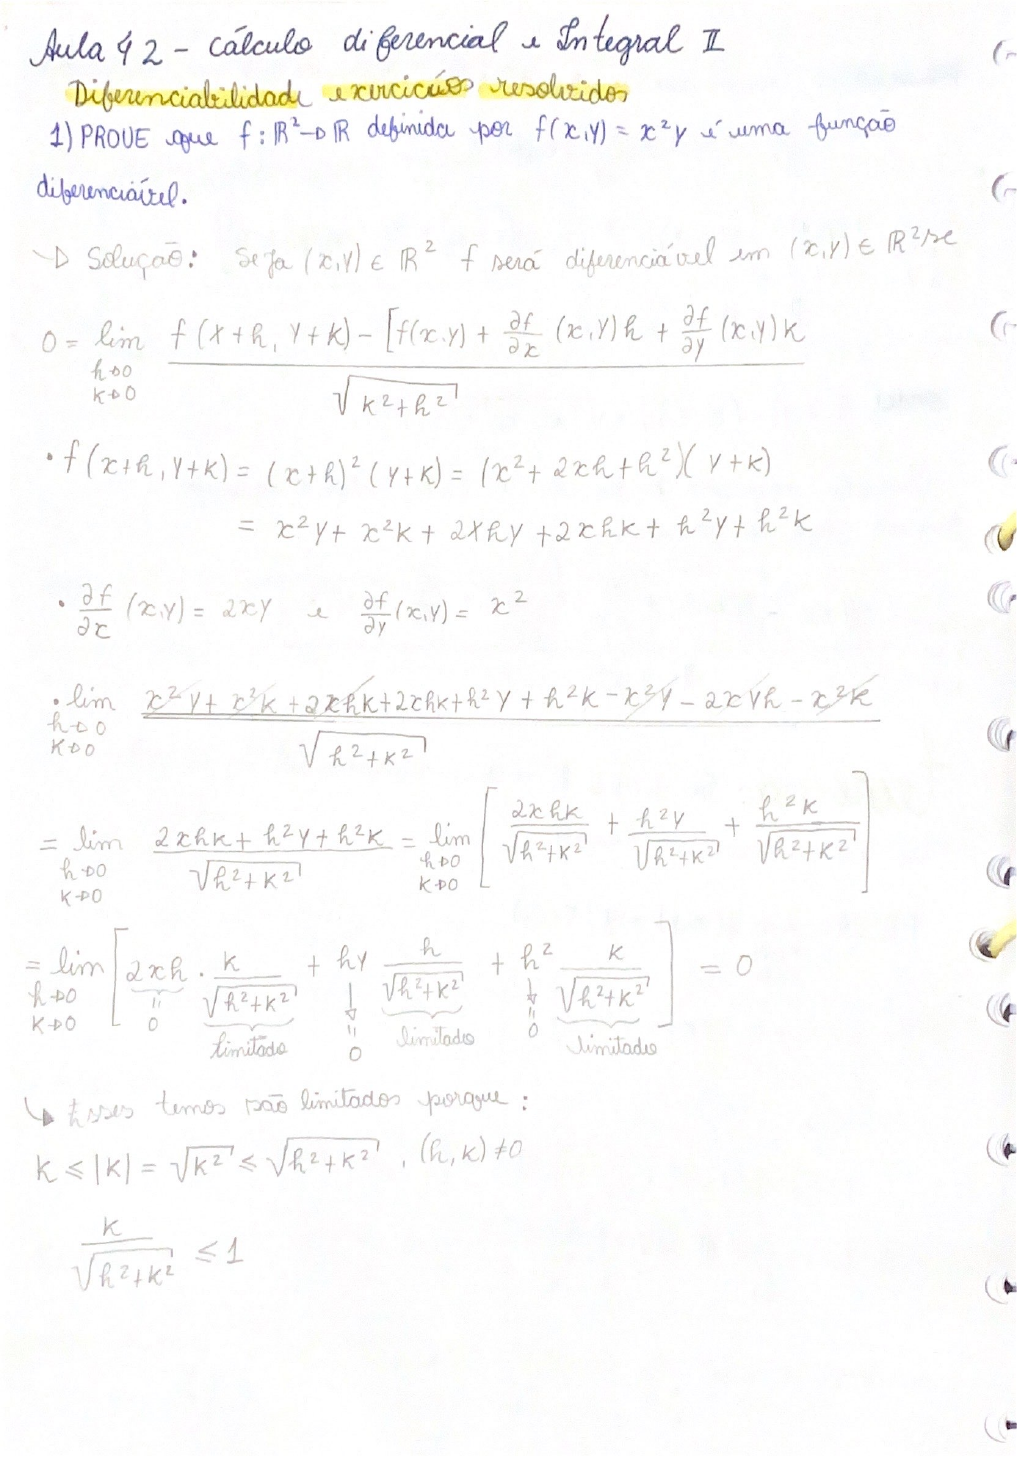 Aula 42 - Cálculo diferencial e Integral II
Diferenciabilidade exercícios resolvidos
1) PROVE que f: ℝ²→ℝ definida por f(x,y) = x²y é uma função
diferenciável.
→ Solução: Seja (x,y) ∈ ℝ² f será diferenciável em (x,y) ∈ ℝ² se
0 = lim h→0 k→0 f(x+h, y+k) - [f(x,y) + ∂f/∂x (x,y)h + ∂f/∂y (x,y)k / √(k²+h²)
• f(x+h, y+k) = (x+h)² (y+k) = (x² + 2xh + h²)(y+k)
= x²y + x²k + 2xhy + 2xhk + h²y + h²k
• ∂f/∂x (x,y) = 2xy e ∂f/∂y (x,y) = x²
• lim h→0 k→0 x²y + x²k + 2xhk + 2xhk + h²y + h²k - x²y - 2xyh - x²k / √(h²+k²)
= lim h→0 k→0 2xhk + h²y + h²k / √(h²+k²) = lim h→0 k→0 [2xhk / √(h²+k²) + h²y / √(h²+k²) + h²k / √(h²+k²)]
= lim h→0 k→0 [2xh · k / √(h²+k²) + hy h / √(h²+k²) + h² k / √(h²+k²)] = 0
0 limitado 0 limitado 0 limitado
↳ Esses temos são limitados porque:
k ≤ |k| = √k² ≤ √(h²+k²), (h,k) ≠ 0
k / √(h²+k²) ≤ 1